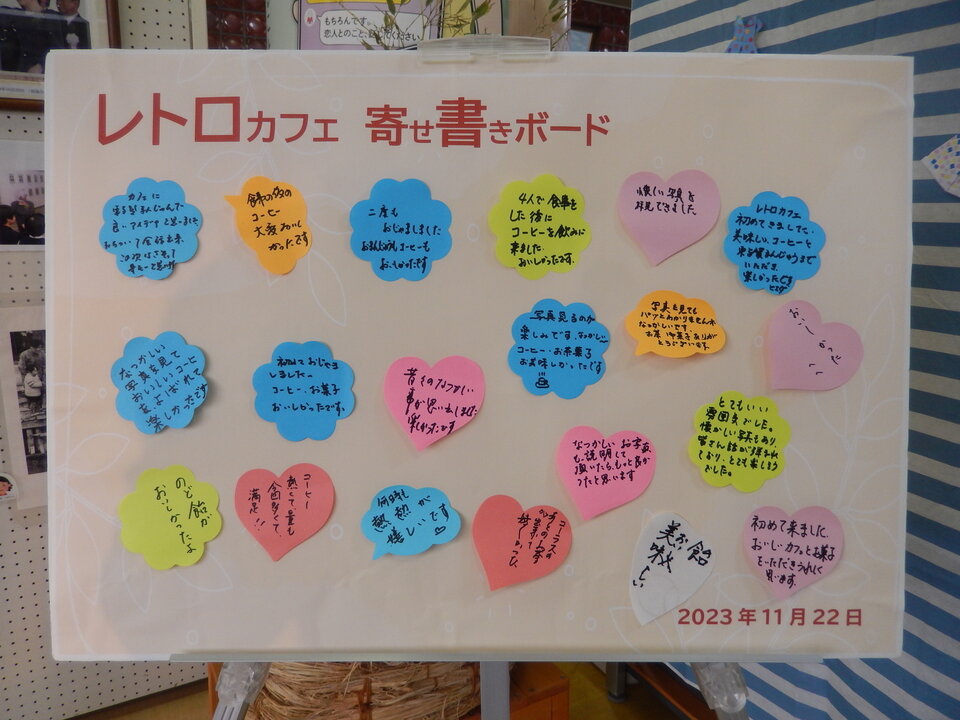 もちろんです。
恋人とのこと、
レトロカフェ 寄せ書きボード
カフェに
良いアイデアと思いました
食事の後の
コーヒー
大変おいし
かったです
二度も
おじゃましました
コーヒーも
おいしかったです
4人で食事を
した後に
コーヒーを飲みに
来ました。
おいしかったです。
懐しい写真を
拝見できました。
レトロカフェ
初めてきました。
美味しい、コーヒーと
まんじゅうまで
いただき
楽しかったです
なつかしい
写真を見て
おいしいコーヒー
をよばれて
楽しかったです
初めておじゃま
しました。
コーヒー、お菓子
おいしかったです。
昔のなつかしい
事が思い出しました
楽しかったです
写真見るのが
楽しみです。なつかしい
コーヒー・お茶菓子
お美味しかったです
写真を見ても
パッとわかりませんが
なつかしいです。
お茶 お菓子ありが
とうございます。
おいしかったへへ
とてもいい
雰囲気でした。
懐かしい写真もあり
皆さん話がはずまれ
ており、とても楽しそう
でした。
なつかしい お写真
も、説明して
頂いたら、もっと良か
ったと思います
のど飴が
おいしかったよ
コーヒー
熱くて量も
多くて、
満足!!
何時も
熱熱が
嬉しいです
コーラスの
飴
美味しい
初めて来ました。
おいしいカフェとお菓子
をいただきうれしく
思います。
2023年11月22日